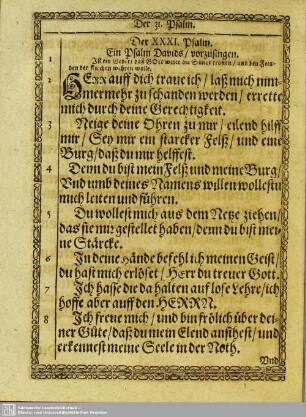 Der 31. Psalm.
Der XXXI. Psalm.
1 Ein Psalm Davids / vorzusingen.
Ist ein Gebet / daß GOtt wider die Feinde
den der Kirchen wehren wolle.
2 HErr auff dich traue ich / laß mich nim-
mermehr zu schanden werden / errette
mich durch deine Gerechtigkeit.
3 Neige deine Ohren zu mir / eilend hilff
mir / Sey mir ein starcker Felß / und eine
Burg / daß du mir helffest.
4 Denn du bist mein Felß und meine Burg /
Und umb deines Namens willen wollestu
mich leiten und führen.
5 Du wollest mich aus dem Netze ziehen /
das sie mir gestellet haben / denn du bist mei-
ne Stärcke.
6 In deine Hände befehl ich meinen Geist /
du hast mich erlöset / HErr du treuer Gott.
7 Ich hasse die da halten auf lose Lehre / ich
hoffe aber auff den HERRN.
8 Ich freue mich / und bin frölich über dei-
ner Güte / daß du mein Elend ansihest / und
erkennest meine Seele in der Noth.
Und